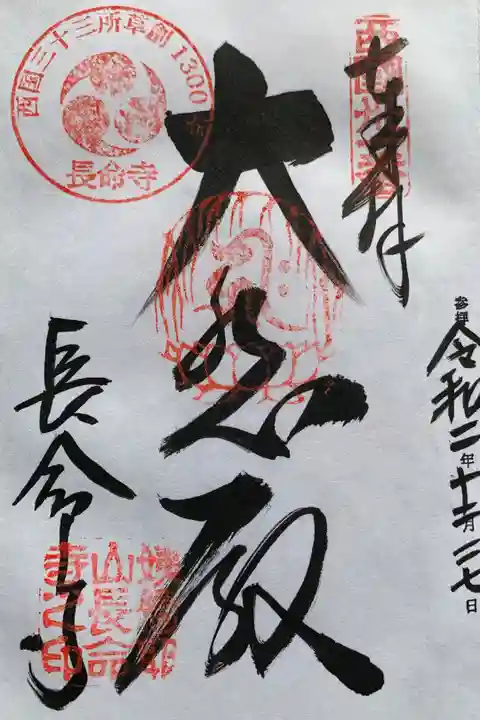 奉拝
西国三十一番
参拝 令和二年十一月二七日
大悲殿
西国三十三所草創1300
長命寺
長命寺
姨綺耶山長命寺之印